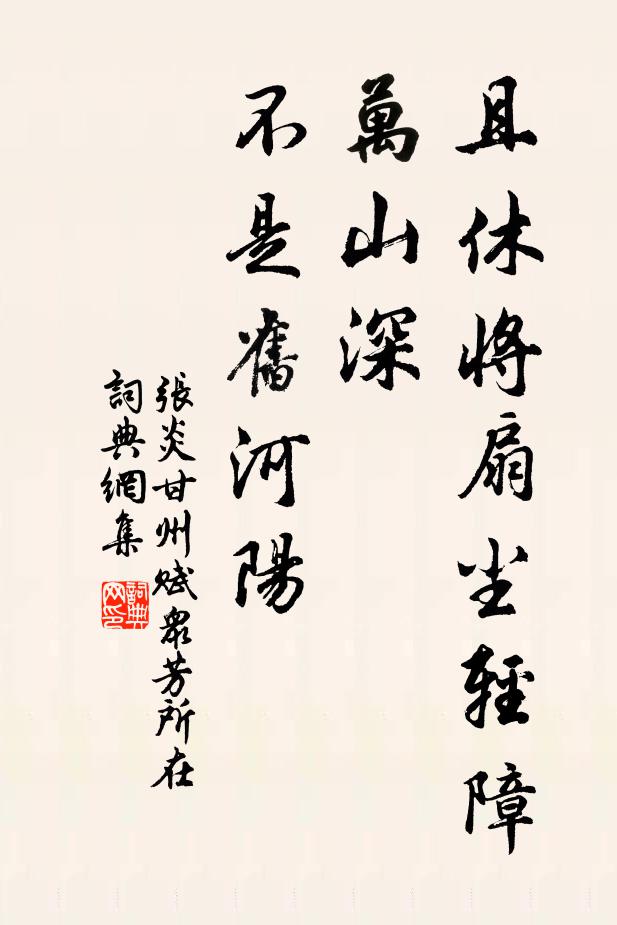 且休將扇尘輕障
萬山深
不是舊河陽
張炎甘州賦眾芳所在
詞典網集
詞典网印